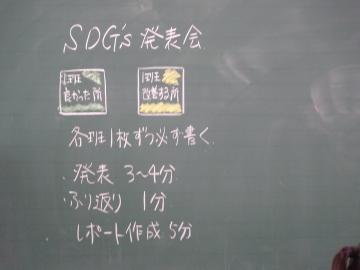 SDG's 発表会
1班
良かった所
1班
改善する所
各班1枚ずつ必ず書く。
・発表 3〜4分
・ふり返り 1分
・レポート作成 5分